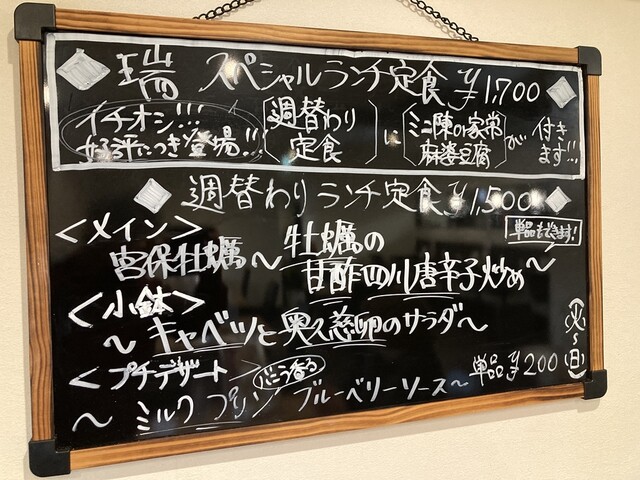 瑞 スペシャルランチ定食 ¥1,700
イチオシ!!!
好評につき登場!!
週替わり
定食
に
ミニ陳の家常
麻婆豆腐
が
付き
ます!!!
週替わりランチ定食 ¥1,500
単品もできます!
<メイン>
宮保牡蠣 〜 牡蠣の
甘酢四川唐辛子炒め〜
<小鉢>
〜 キャベツと奥久慈卵のサラダ〜
(火〜日)
<プチデザート>
バニラ香る
単品¥200
〜 ミルクプリン ブルーベリーソース〜